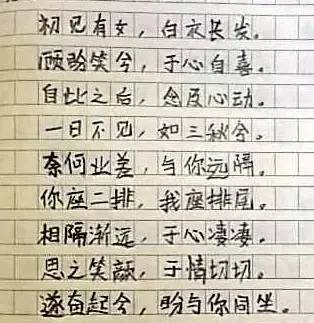 初见有女，白衣长发。
顾盼笑兮，于心自喜。
自此之后，念及心动。
一日不见，如三秋兮。
奈何业差，与你远隔。
你座二排，我座排尾。
相隔渐远，于心凄凄。
思之笑颜，于情切切。
遂奋起兮，盼与你同坐。